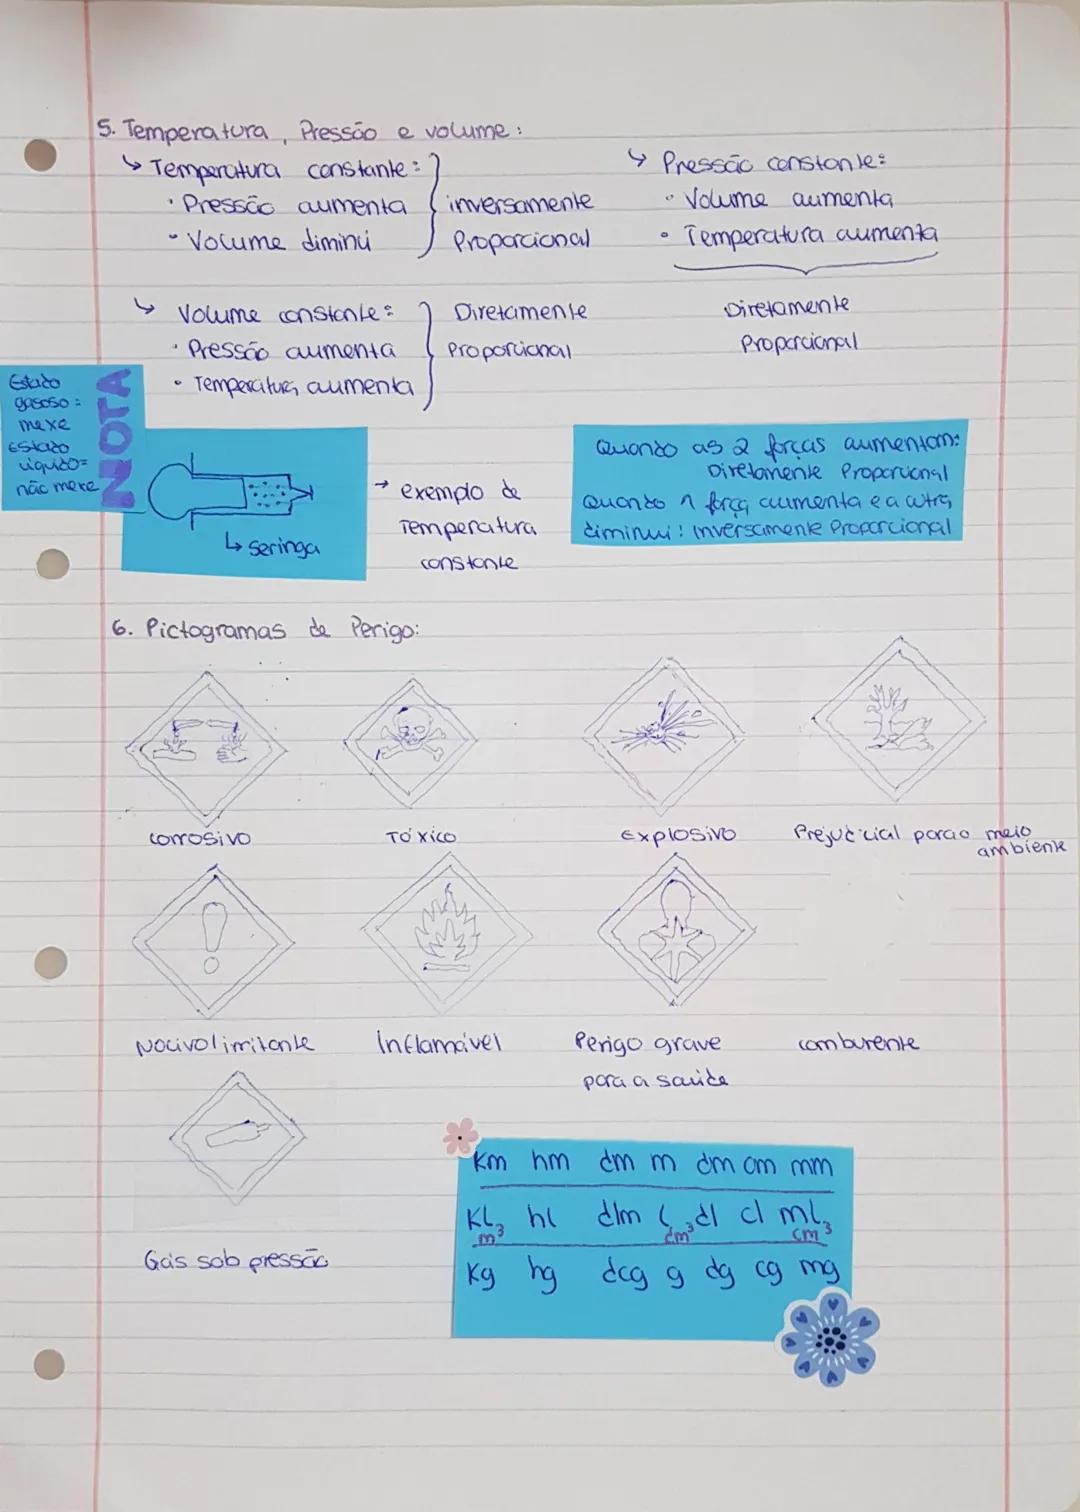 5. Temperatura, Pressão e volume:
↳ Temperatura constante:
• Pressão aumenta
• Volume diminú
inversamente
Proporcional
↳ Pressão constante:
• Volume aumenta
• Temperatura aumenta
Diretamente
Proporcional
↳ Volume constante:
• Pressão aumenta
• Temperatura aumenta
Diretamente
Proporcional
NOTA
Estado
gasoso:
mexe
Estado
liquido=
não mexe
↳ seringa
→ exemplo de
Temperatura
constante
Quando as 2 forças aumentam:
Diretamente Proporcional
Quando 1 força aumenta e a outra
diminui: Inversamente Proporcional
6. Pictogramas de Perigo:
corrosivo
Tóxico
Explosivo
Prejudicial para o meio
ambiente
Nocivo/irritante
Inflamável
Perigo grave
para a saúde
comburente
Gás sob pressão
Km hm dm m dm cm mm
KL hl dlm l dl cl mL
m³ dm³ cm³
Kg hg dcg g dg cg mg